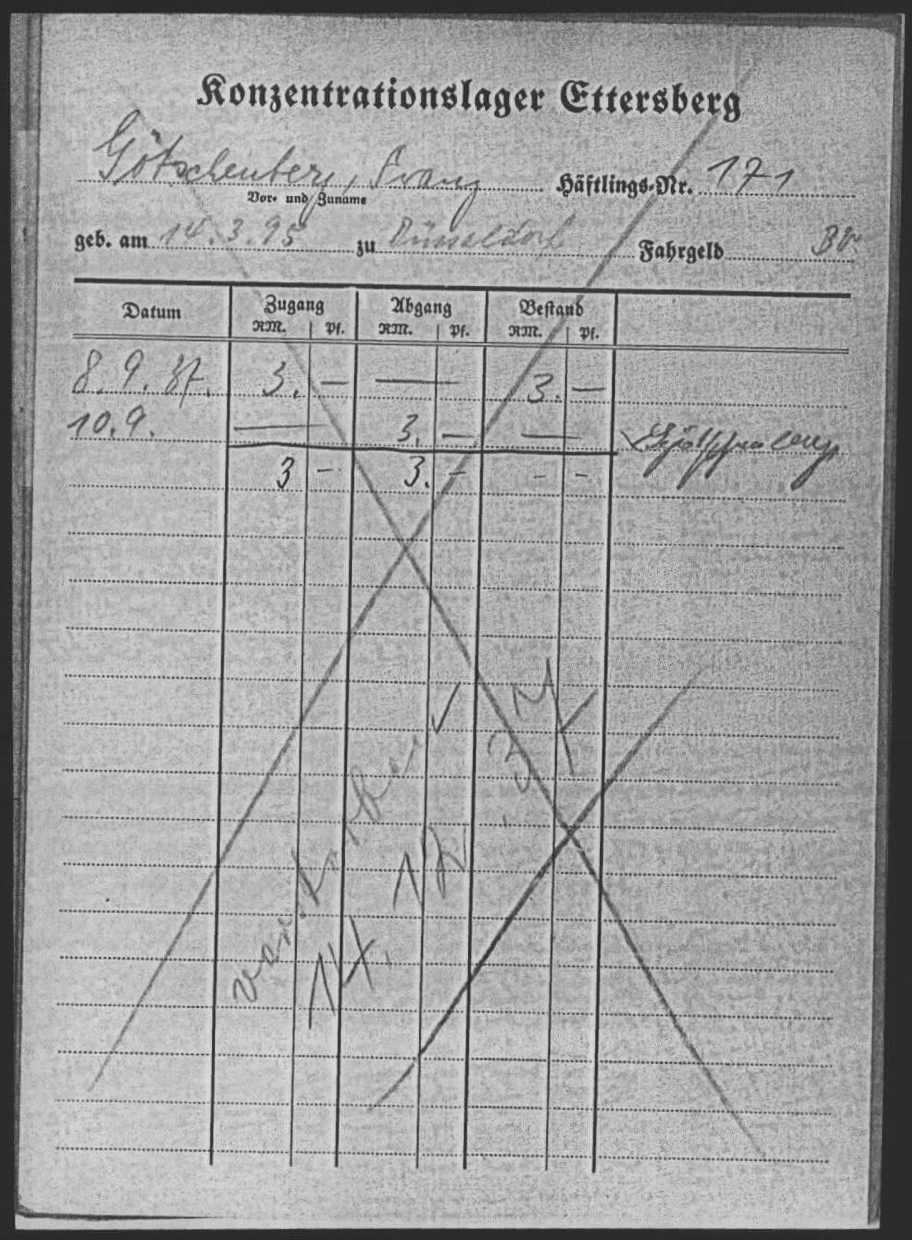 Konzentrationslager Ettersberg
Götschenberg, Franz Häftlings-Nr. 171
Vor- und Zuname
geb. am 14.3.95 zu Düsseldorf Fahrgeld BV
Datum Zugang Abgang Bestand
RM. Pf. RM. Pf. RM. Pf.
8.9.37. 3. — — 3. —
10.9. — 3. — — Götschenberg
3 - 3. - - -
14. 12. 37